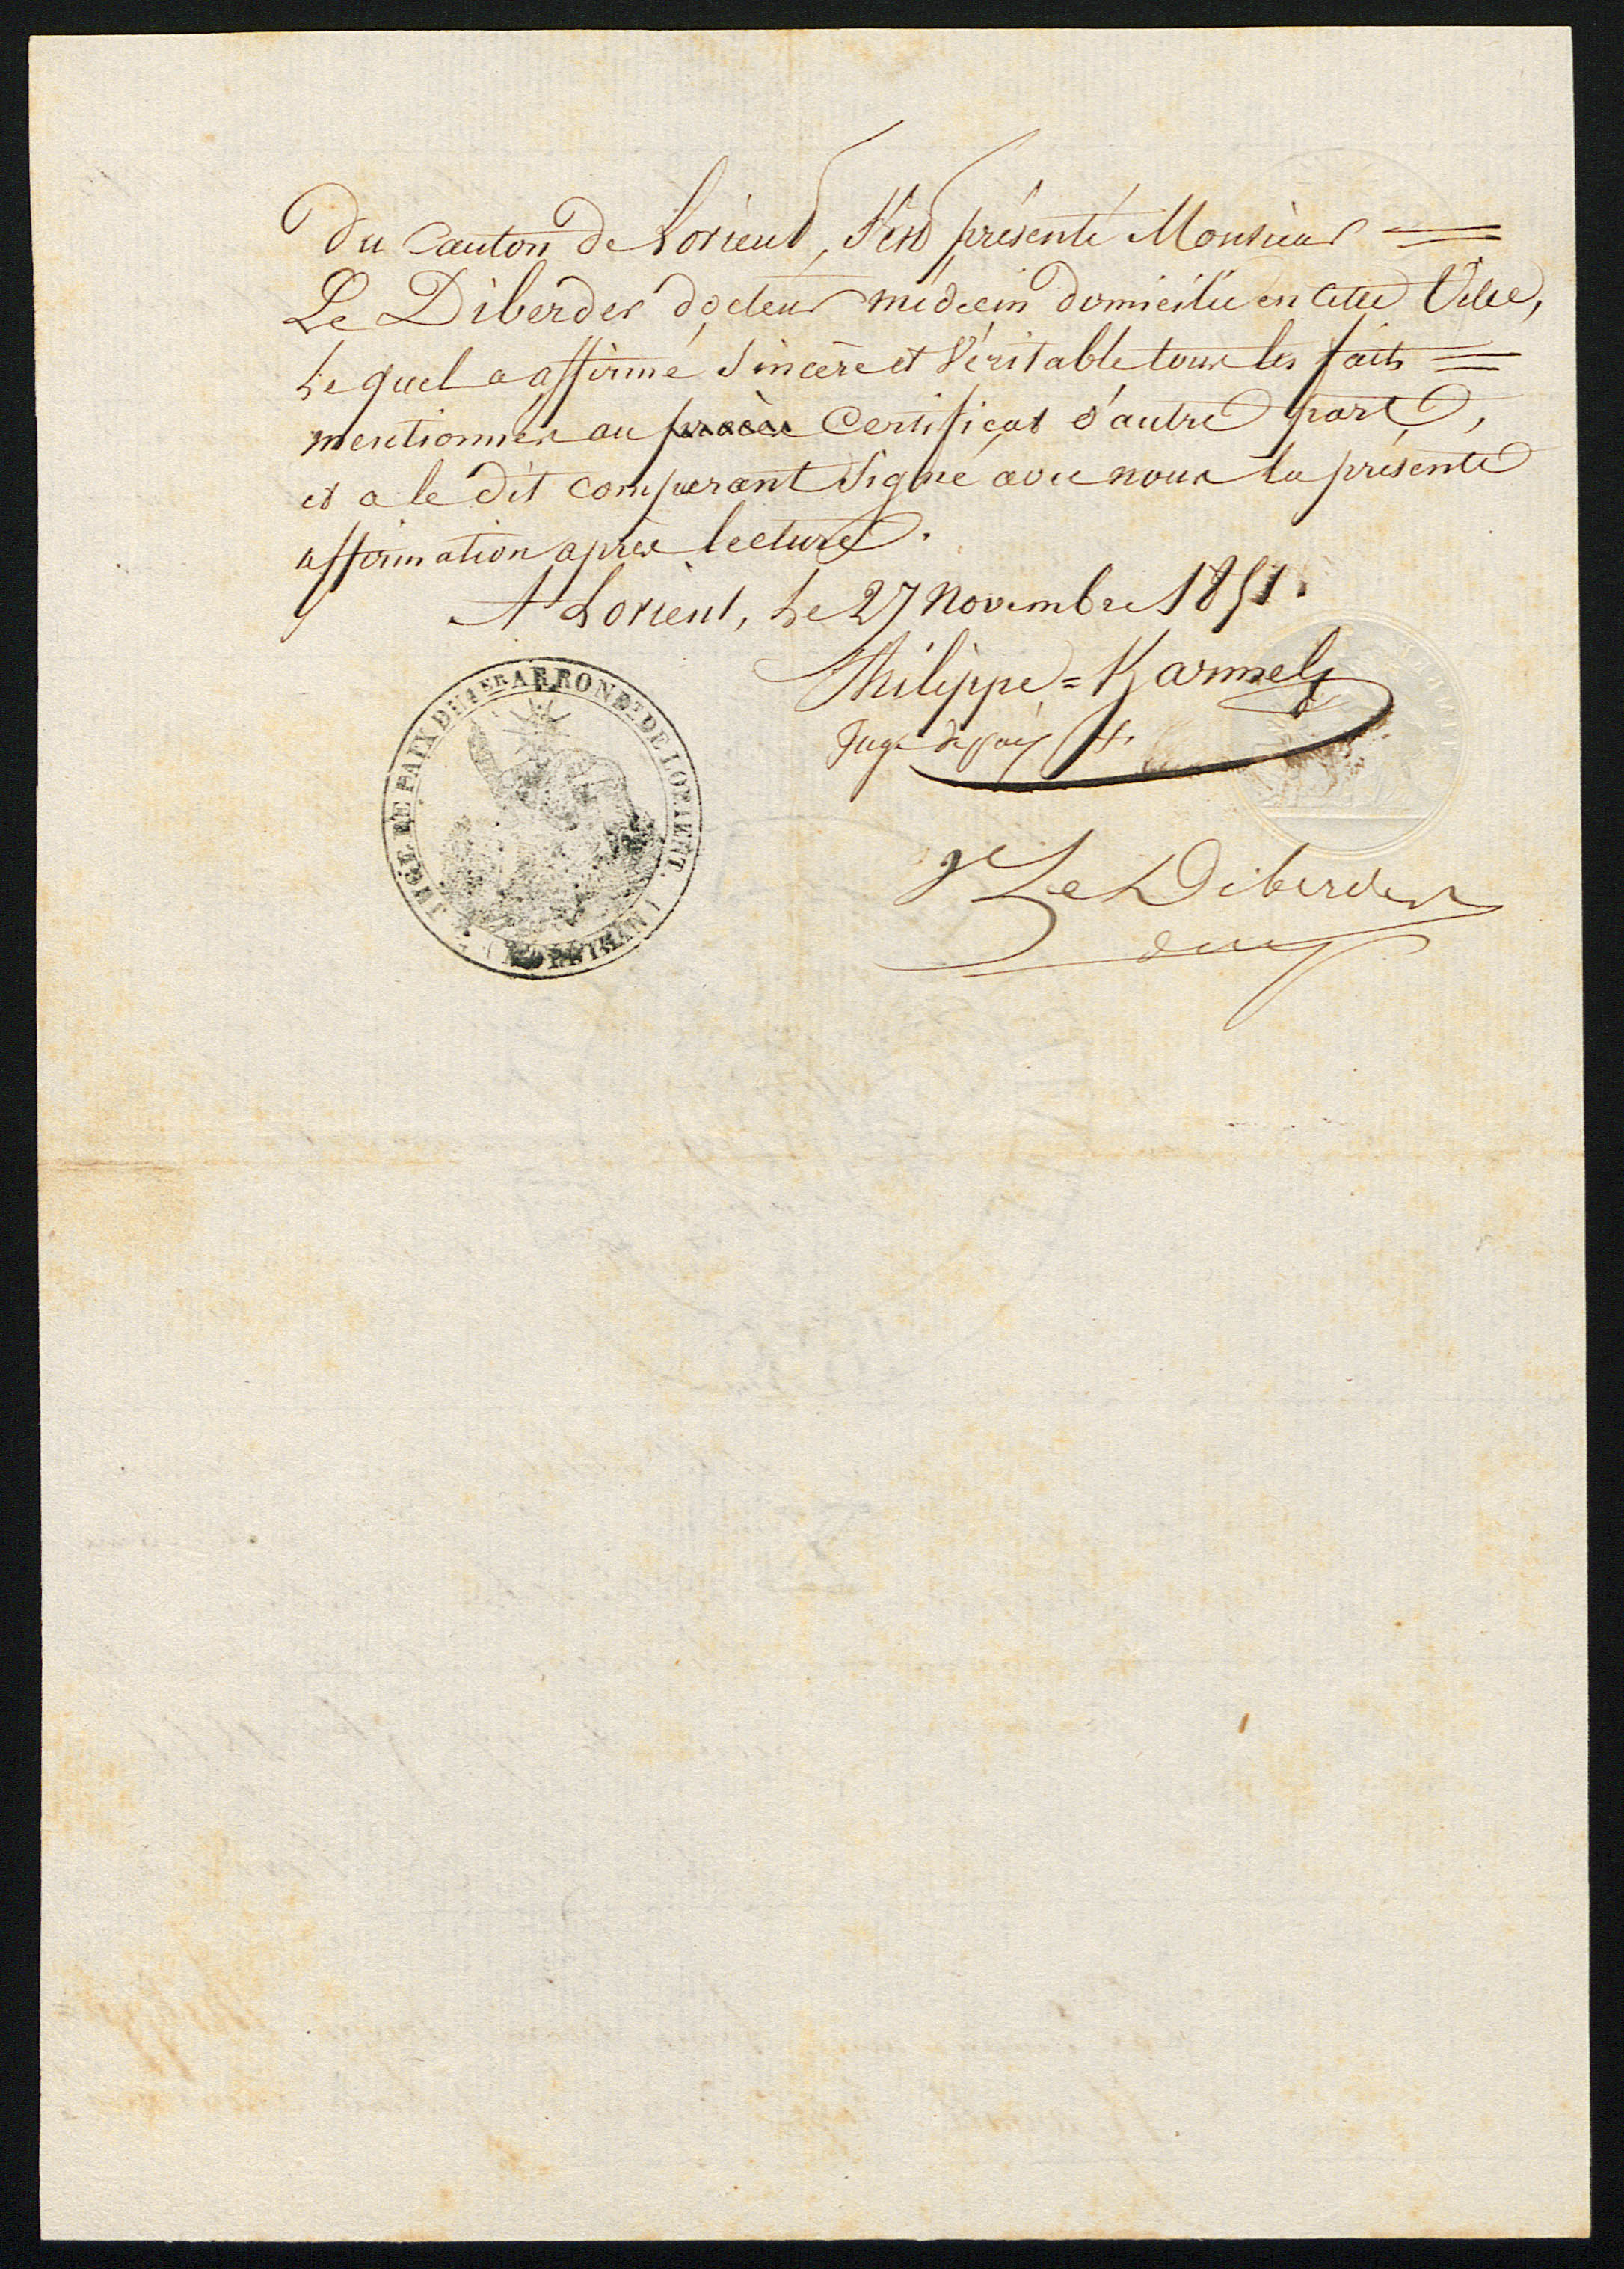 du Canton de Lorient, s'est présenté Monsieur =
Le Diberder docteur médecin domicilié en cette Ville,
Lequel a affirmé Sincère et Véritable tous les faits =
mentionnés au procès Certificat d'autre part,
et a le dit comparant Signé avec nous la présente
affirmation après lecture.
A Lorient, Le 27 Novembre 1851.
Philippe = Karmel
Juge de paix
JUGE DE PAIX DU 1ER ARRONDT DE LORIENT.
(MORBIHAN)
Le Diberder